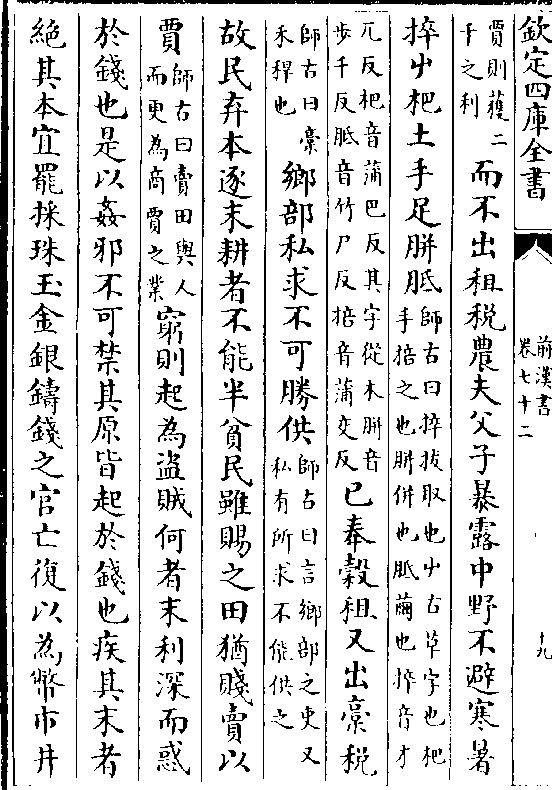 欽定四庫全書
前漢書
卷七十二
十九
賈則獲二
千之利
而不出租税農夫父子暴露中野不避寒暑
捽屮杷土手足胼胝
師古曰捽拔取也屮古草字也杷
手掊之也胼併也胝繭也捽音才
兀反杷音蒲巴反其字從木胼音
步千反胝音竹尸反掊音蒲交反
已奉穀租又出稾税
師古曰稾
禾稈也
鄉部私求不可勝供
師古曰言鄉部之吏又
私有所求不能供之
故民弃本逐末耕者不能半貧民雖賜之田猶賤賣以
賈
師古曰賣田與人
而更為商賈之業
窮則起為盗賊何者末利深而惑
於錢也是以姦邪不可禁其原皆起於錢也疾其末者
絶其本宜罷採珠玉金銀鑄錢之官亡復以為幣市井